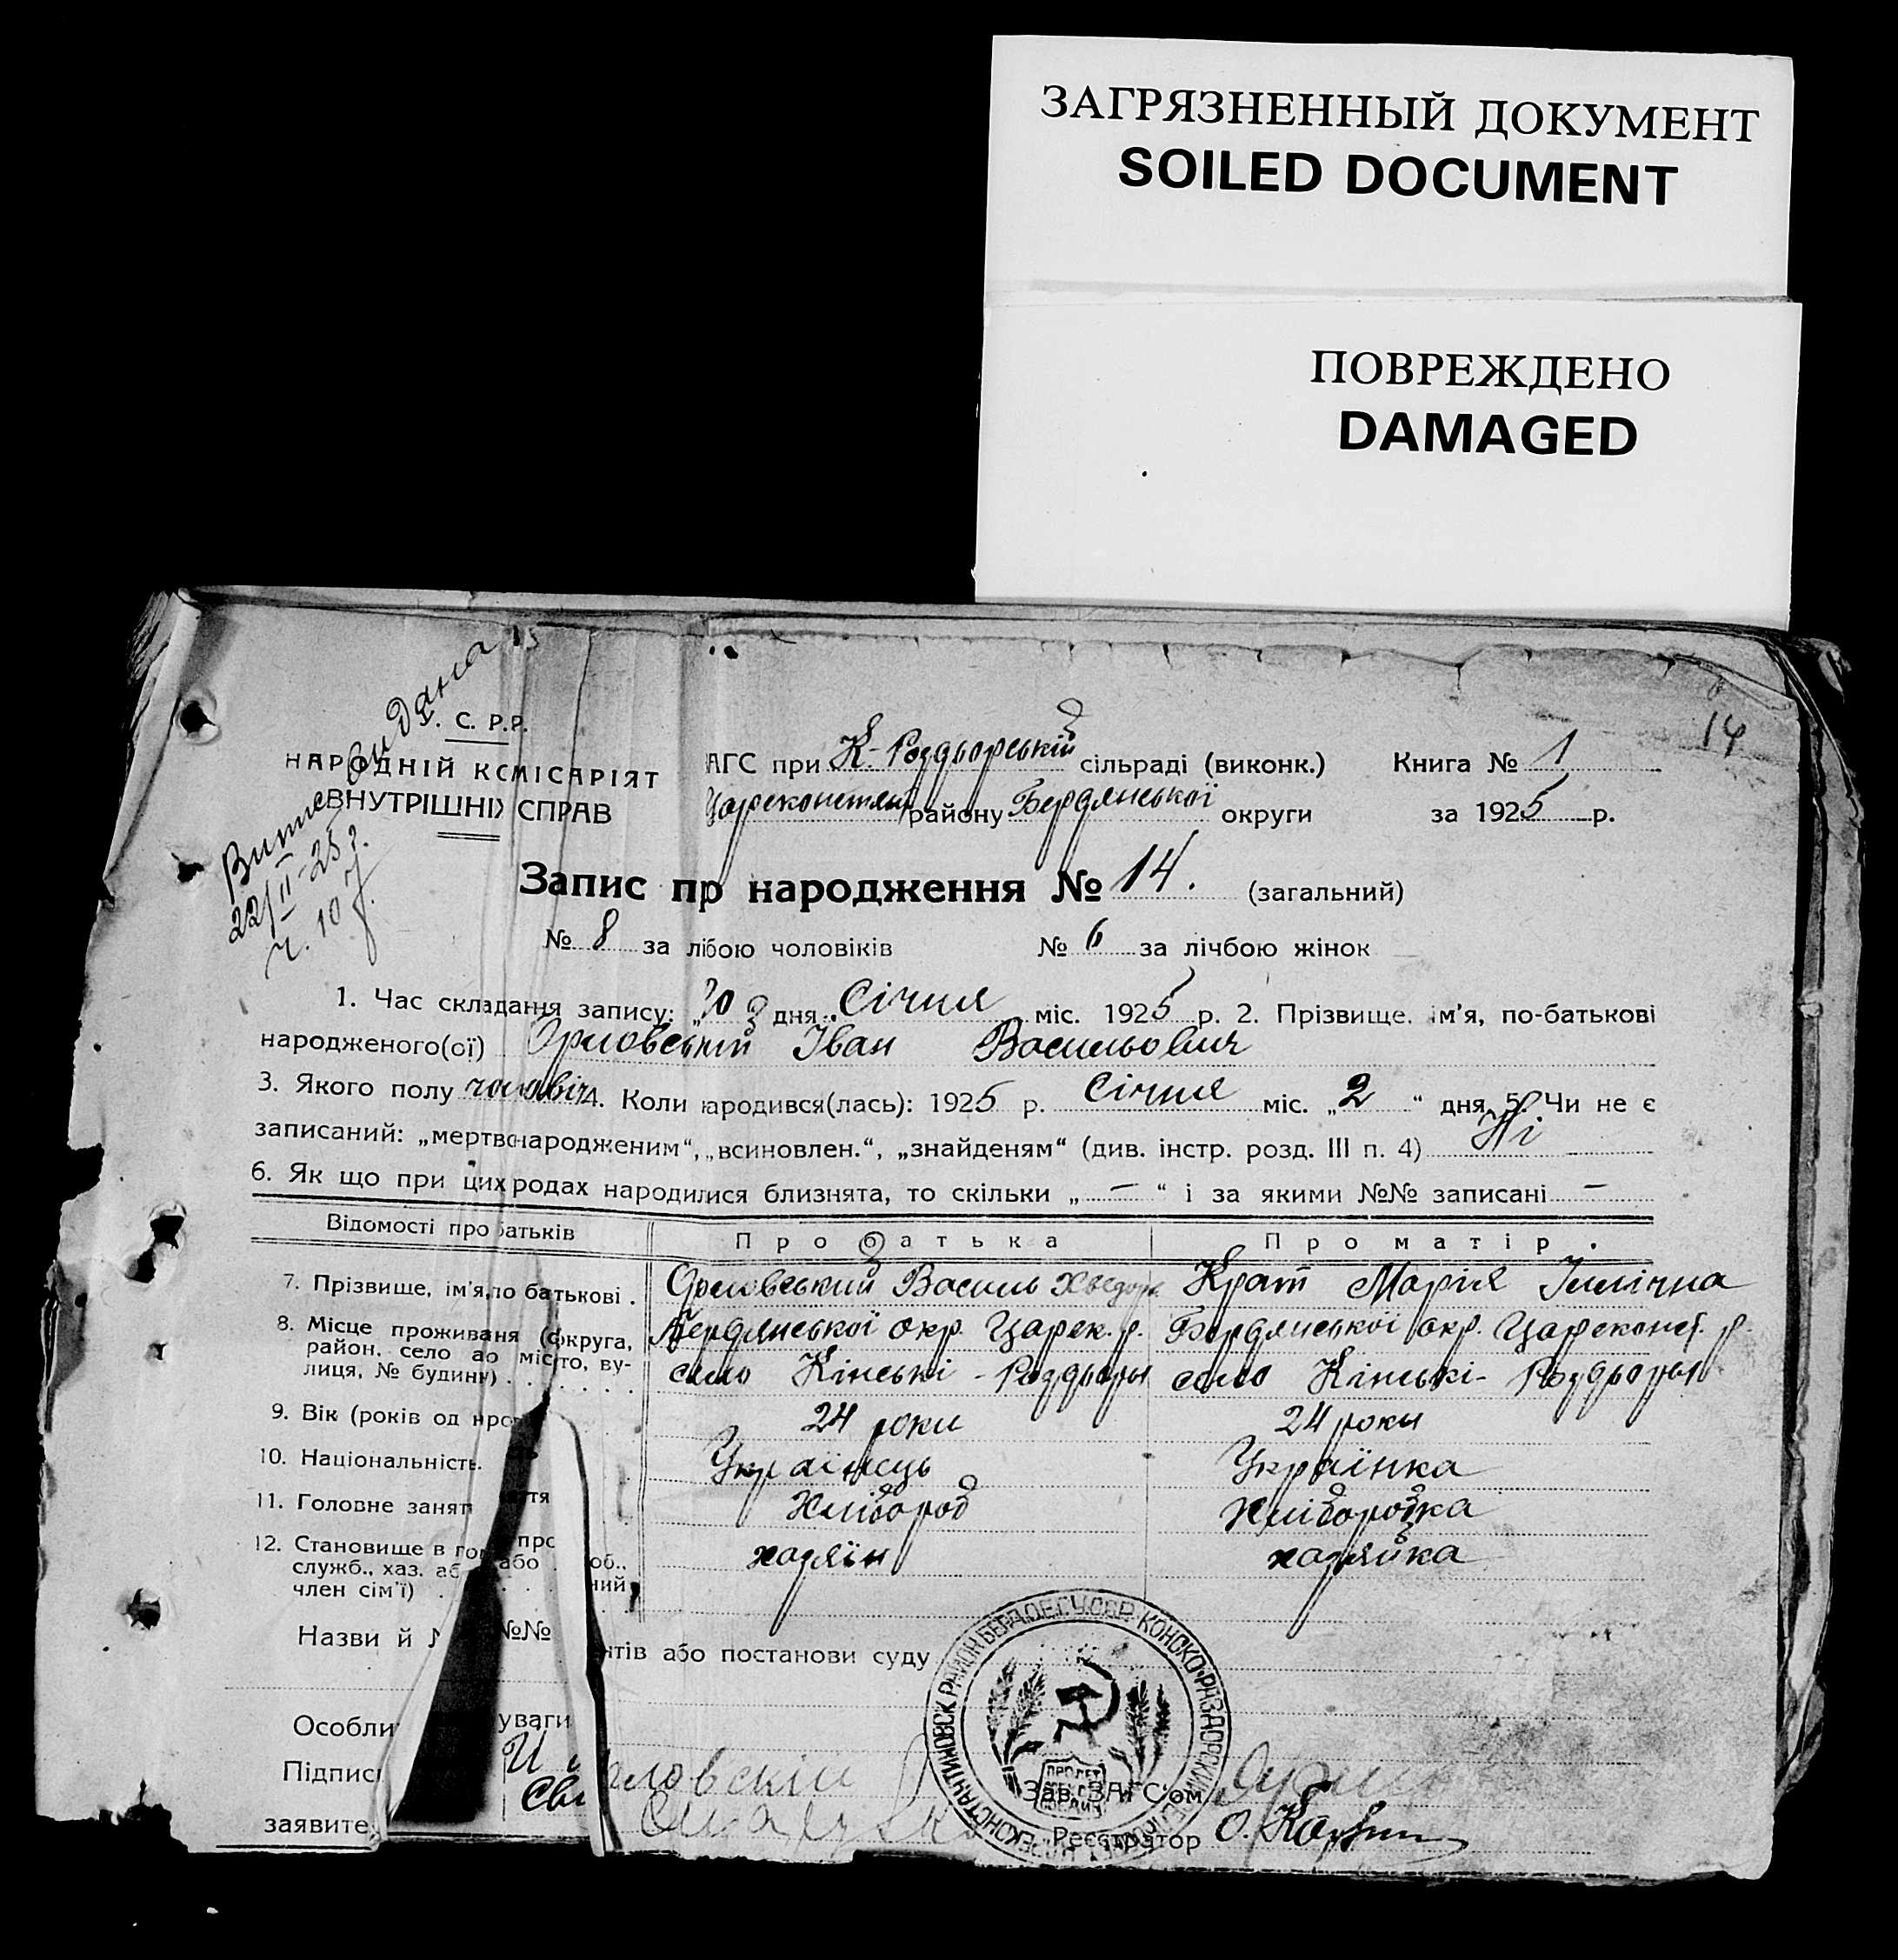 ЗАГРЯЗНЕННЫЙ ДОКУМЕНТ
SOILED DOCUMENT
ПОВРЕЖДЕНО
DAMAGED
14
видана
С. Р.Р.
НАРОДНІЙ КОМІСАРІЯТ
ВНУТРІШНІХ СПРАВ
22/II-25 р.
ч. 107
АГС при К-Роздьорській сільраді (виконк.) Книга № 1
Цареконстян району Бердянської округи за 1925 р.
Запис пр народження № 14. (загальний)
№ 8 за лібою чоловіків № 6 за лічбою жінок
1. Час складання запису: „ дня Січня міс. 1925 р. 2. Прізвище, ім'я, по-батькові
народженого(ої) Орловській Іван Васильович
3. Якого полу чоловіч 4. Коли народився(лась): 1925 р. Січня міс. „2“ дня 5. Чи не є
записаний: „мертвонародженим“, „всиновлен.“, „знайденям“ (див. інстр. розд. III п. 4) Ні
6. Як що при цих родах народилися близнята, то скільки „ — “ і за якими №№ записані —
Відомості про батьків Про батька Про матір.
7. Прізвище, ім'я, по батькові . Орловський Василь Хведор Крат Марія Іллічна
8. Місце проживаня (округа, Бердянської окр. Царек. р. Бердянської окр. Цареконст. р.
район, село або місто, ву- село Кінські - Роздьоры село Кінські - Роздьоры
лиця, № будинк)
9. Вік (років од 24 роки 24 роки
10. Національність. Українець Українка
11. Головне занят тя Хлібороб Хліборобка
12. Становище в про хазяїн хазяйка
служб., хаз. або об.,
член сім'ї) ний,
Назви й №№ нтів або постанови суду
Особли уваги
Підпис
заявите
ЦАРЕКОНСТАНТИНОВСК РАЙОН БЕРД.ОКР. УССР КОНСКО-РАЗДОРСКИЙ
ПРОЛЕТ
Зав. ЗАГС'ом
Реєстратор О.